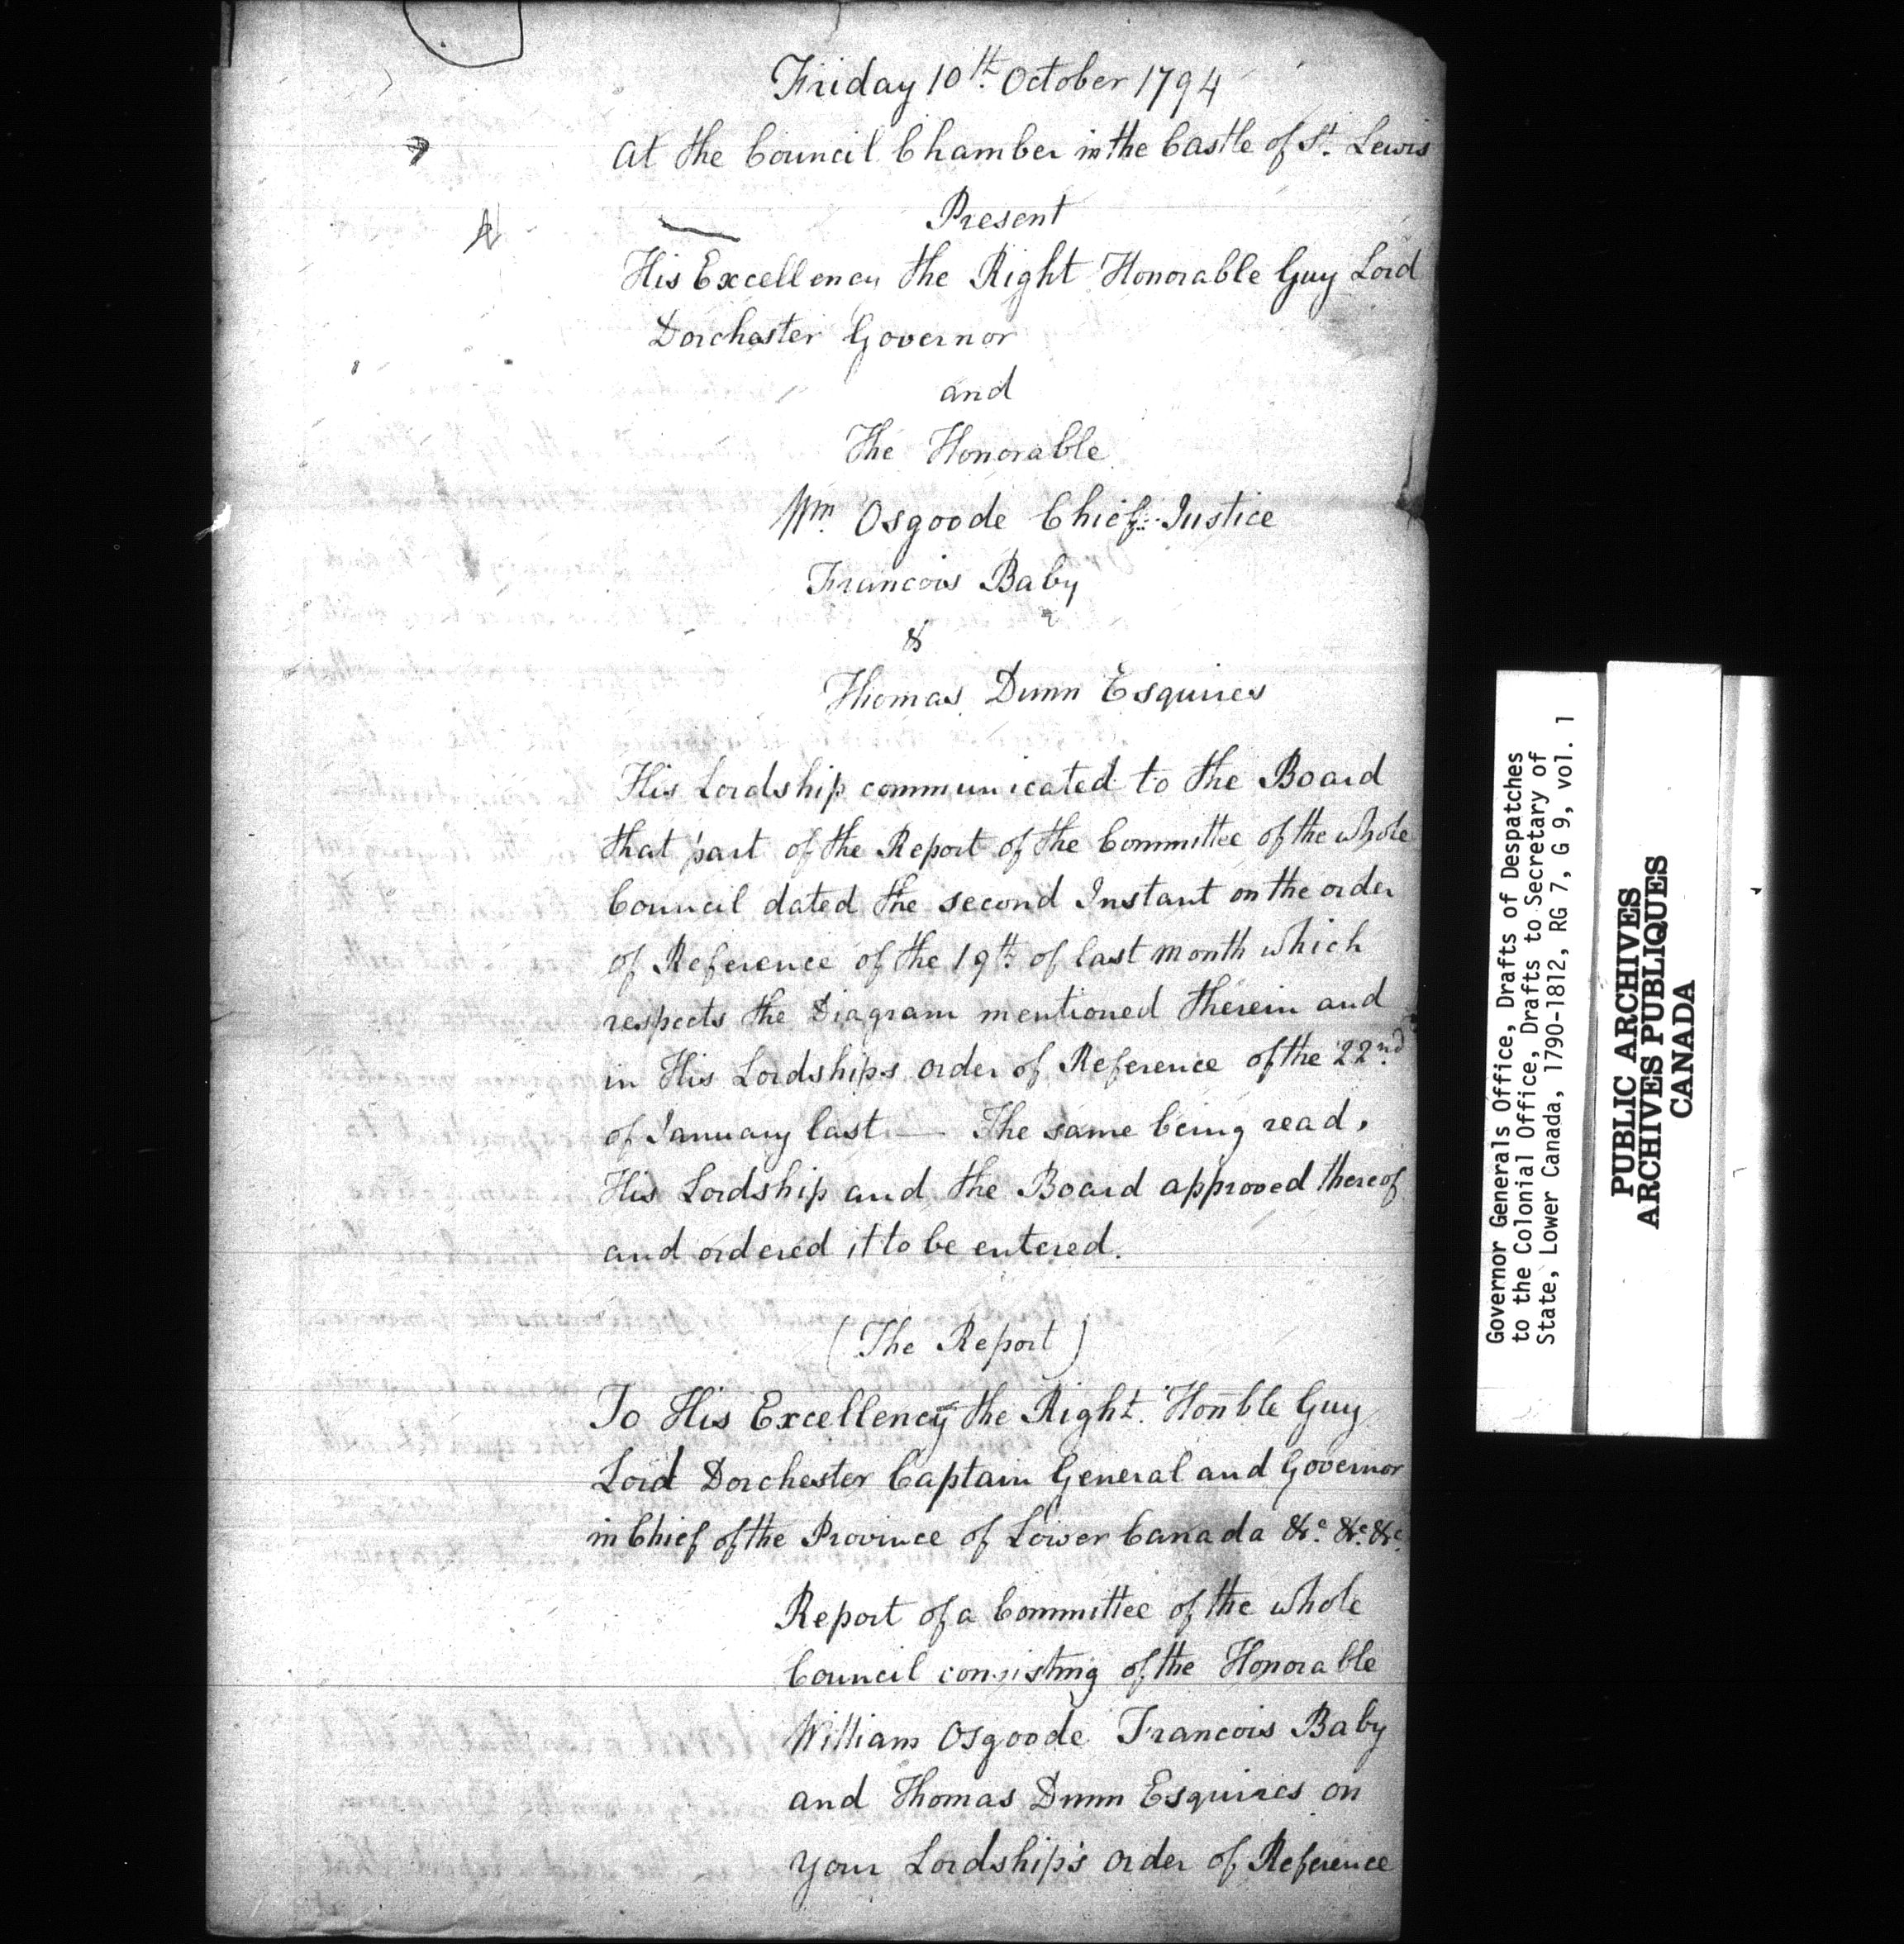 Friday 10th. October 1794
At the Council Chamber in the Castle of St. Lewis
Present
His Excellency the Right Honorable Guy Lord
Dorchester Governor
and
The Honorable
Wm. Osgoode Chief Justice
Francois Baby
&
Thomas Dunn Esquires
His Lordship communicated to the Board
that part of the Report of the Committee of the whole
Council dated the second Instant on the order
of Reference of the 19th. of last Month which
respects the Diagram mentioned therein and
in His Lordships order of Reference of the 22nd.
of January last — The same being read,
His Lordship and the Board approved thereof
and ordered it to be entered.
(The Report)
To His Excellency the Right. Honble Guy
Lord Dorchester Captain General and Governor
in Chief of the Province of Lower Canada &c. &c. &c.
Report of a Committee of the whole
Council consisting of the Honorable
William Osgoode Francois Baby
and Thomas Dunn Esquires on
your Lordship's order of Reference
Governor Generals Office, Drafts of Despatches
to the Colonial Office, Drafts to Secretary of
State, Lower Canada, 1790-1812, RG 7, G 9, vol. 1
PUBLIC ARCHIVES
ARCHIVES PUBLIQUES
CANADA